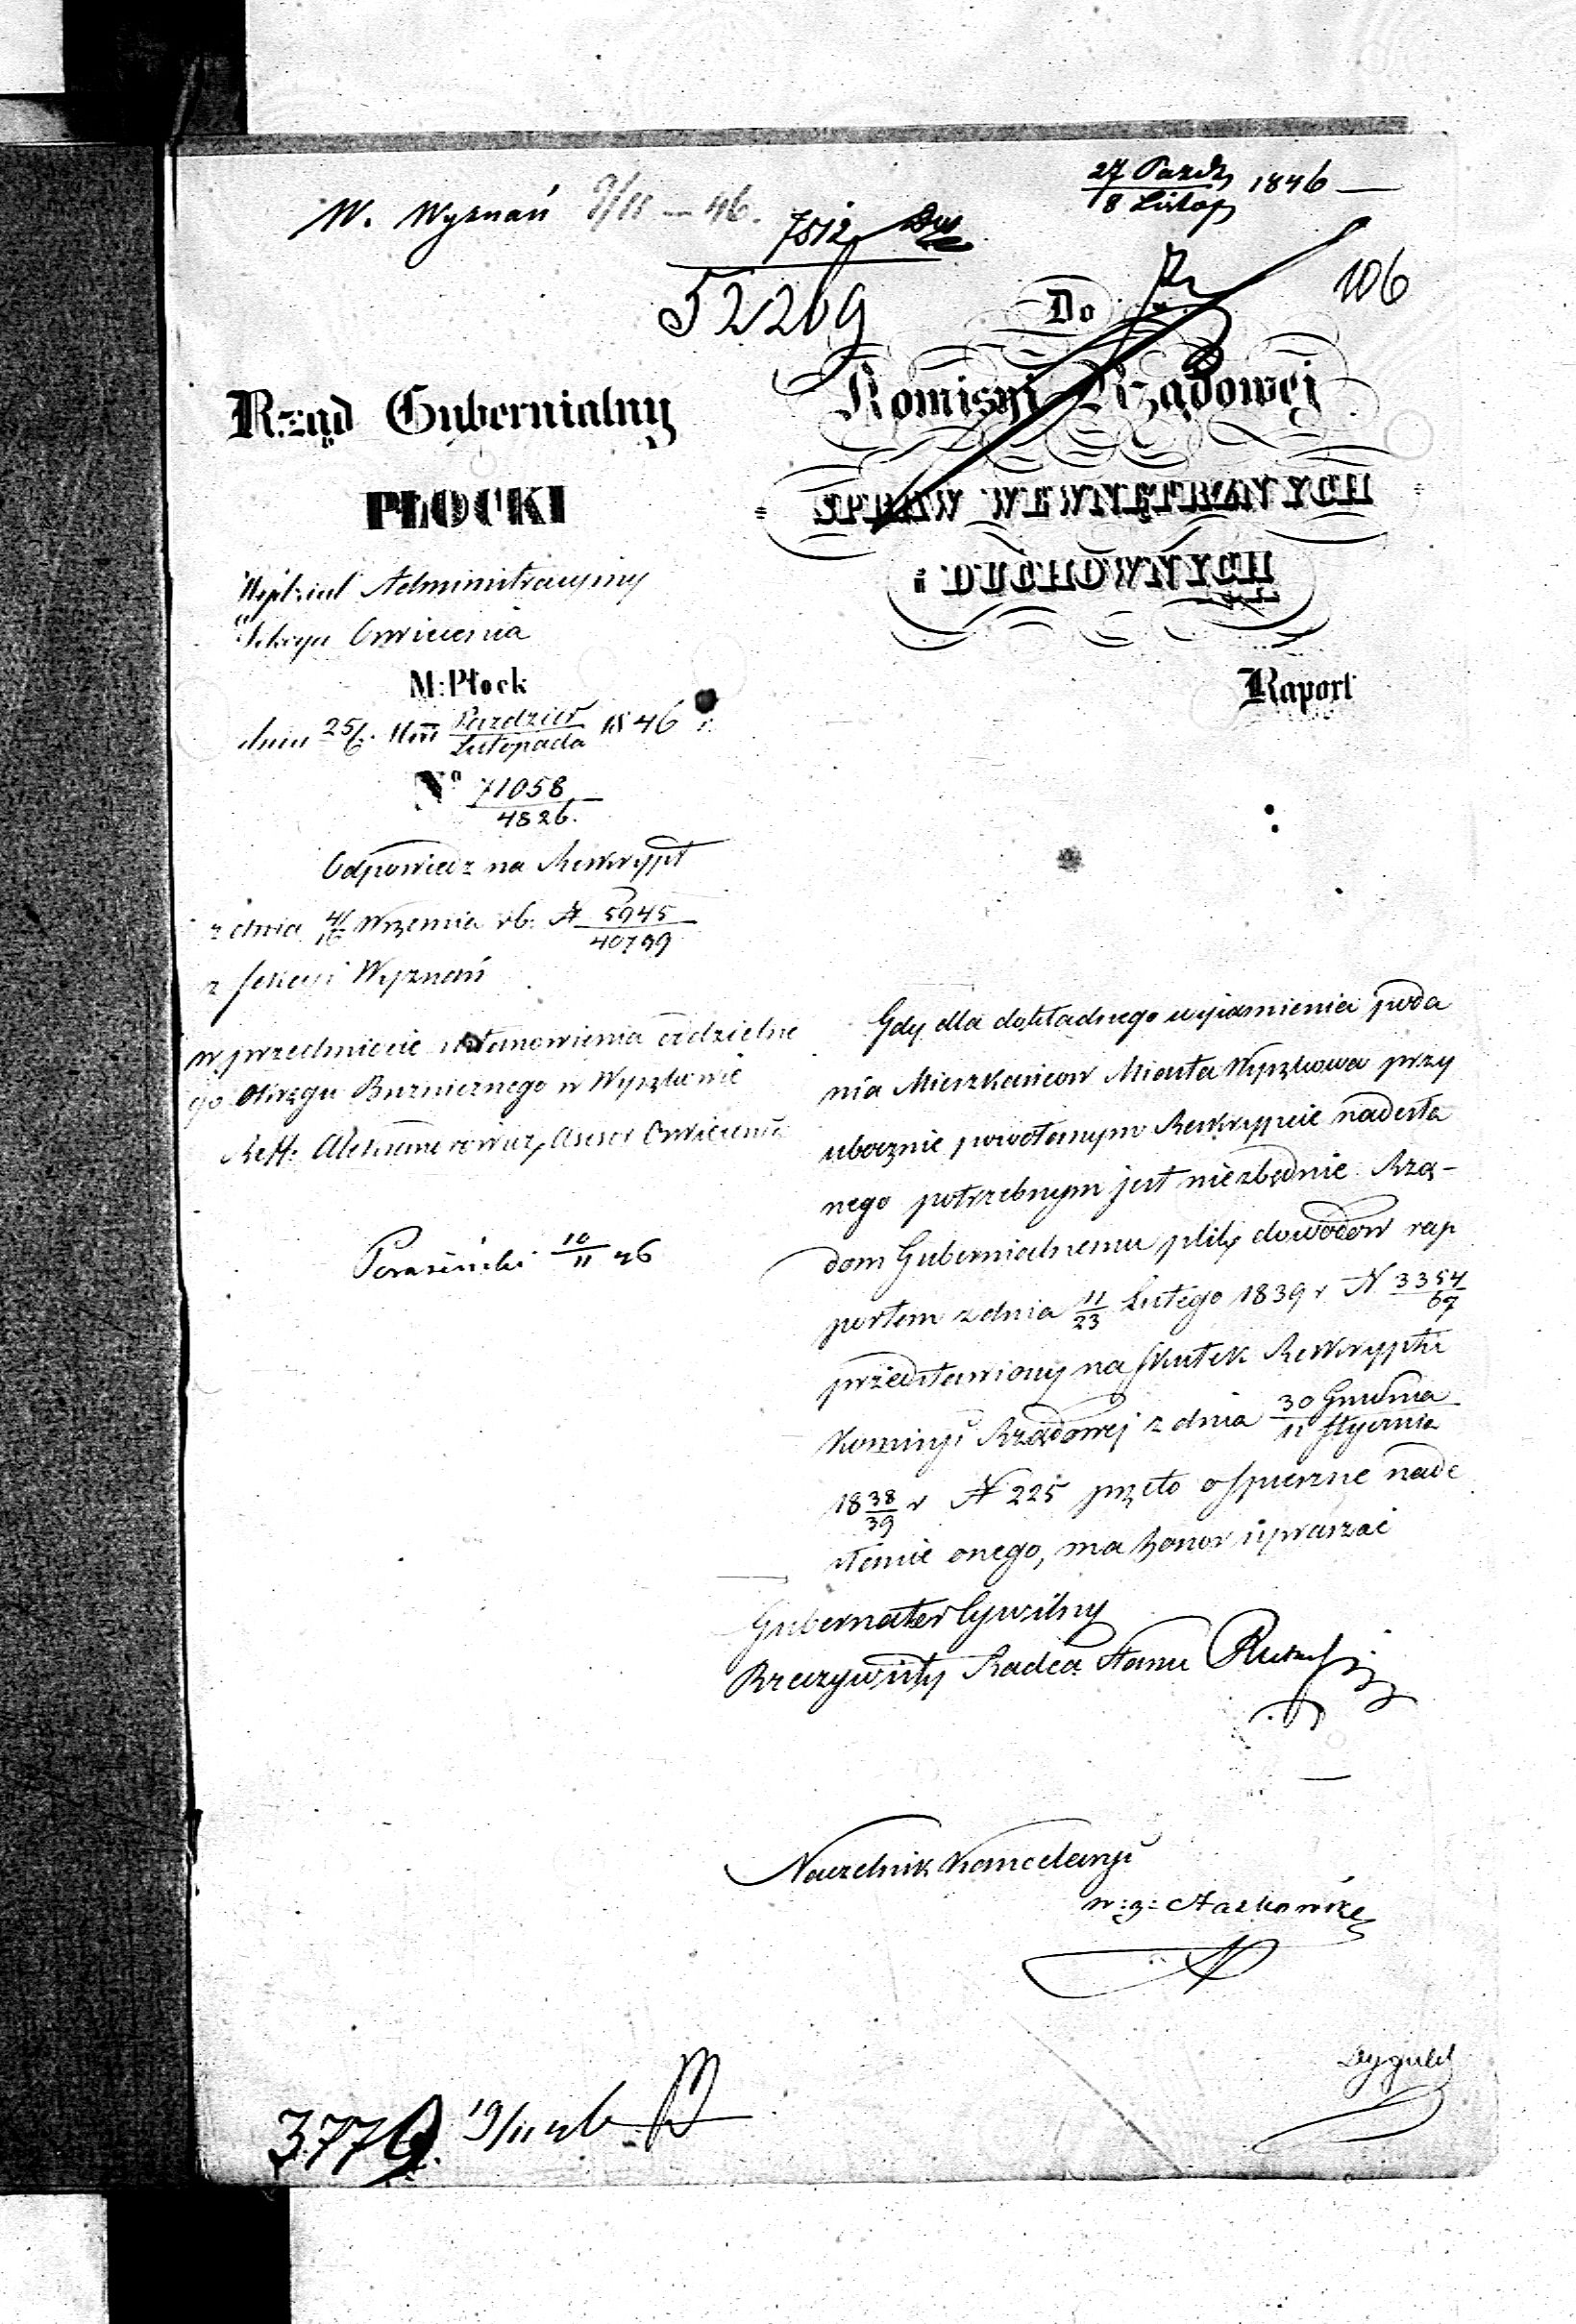 27 Paźdz 1846
8 Listop
W. Wyznań 9/11 — 46.
7512
52269
106
Do
Komisyi Rządowej
SPRAW WEWNĘTRZNYCH
i DUCHOWNYCH
Raport
Rząd Gubernialny
PŁOCKI
Wydział Administracyjny
Sekcya Oświecenia
M: Płock
dnia 25/6. Mca Paździer 1846 r.
Listopada
No 71058
4826.
Odpowiedz na Reskrypt
z dnia 4/16 Września rb. N 5945
40799
z Sekcyi Wyznań
w przedmiocie ustanowienia oddzielne
go Okręgu Bużniczego w Wyszkowie
Reff: Alexandrowicz, Asesor Oswiecenia
10/11 46
Gdy dla dokładnego wyjasnienia poda
nia Mieszkańcow Miasta Wyszkowa przy
ubocznie powołanym Reskrypcie nadesła
nego potrzebnym jest niezbędnie Rzą-
dowi Gubernialnemu plik dowodow rap
portem z dnia 11/23 Lutego 1839 r N 3354
67
przedstawiony na skutek Reskryptu
Kommisyi Rządowej z dnia 30 Grudnia
11 Stycznia
18 38/39 r N 225 przeto o spieszne nade
słanie onego, ma honor upraszać
Gubernator Cywilny
Rzeczywisty Radca Stanu
Naczelnik Kancelaryi
w: z:
3776. 19/11 46